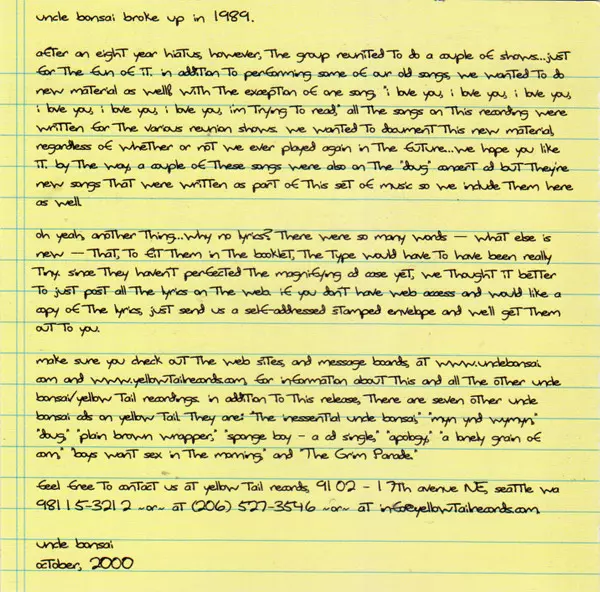 uncle bonsai broke up in 1989.
after an eight year hiatus, however, the group reunited to do a couple of shows...just
for the fun of it. in addition to performing some of our old songs, we wanted to do
new material as well. with the exception of one song, "i love you, i love you, i love you,
i love you, i love you, i love you, i'm trying to read," all the songs on this recording were
written for the various reunion shows. we wanted to document this new material,
regardless of whether or not we ever played again in the future...we hope you like
it. by the way, a couple of these songs were also on the "doug" concert cd but they're
new songs that were written as part of this set of music so we include them here
as well.
oh yeah, another thing...why no lyrics? there were so many words — what else is
new — that, to fit them in the booklet, the type would have to have been really
tiny. since they haven't perfected the magnifying cd case yet, we thought it better
to just post all the lyrics on the web. if you don't have web access and would like a
copy of the lyrics, just send us a self-addressed stamped envelope and we'll get them
out to you.
make sure you check out the web sites, and message boards, at www.unclebonsai.
com and www.yellowtailrecords.com, for information about this and all the other uncle
bonsai/yellow tail recordings. in addition to this release, there are seven other uncle
bonsai cds on yellow tail. they are: "the inessential uncle bonsai," "myn ynd wymyn,"
"doug," "plain brown wrapper," "sponge boy - a cd single," "apology," "a lonely grain of
corn," "boys want sex in the morning," and "the Grim Parade."
feel free to contact us at yellow tail records, 9102 - 17th avenue NE, seattle wa
98115-3212 ~or~ at (206) 527-3546 ~or~ at info@yellowtailrecords.com.
uncle bonsai
october, 2000